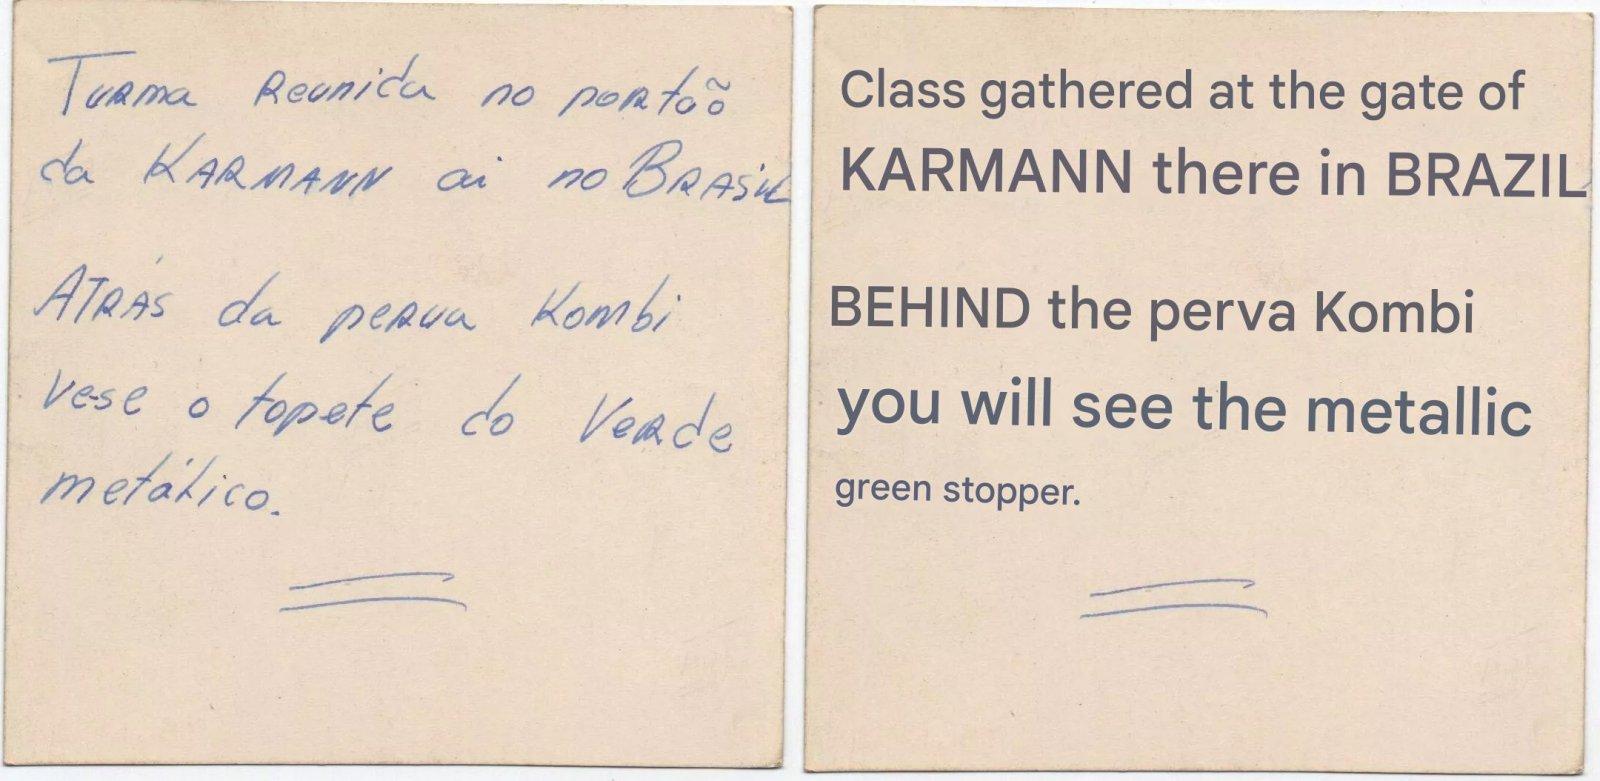 Turma reunida no portão
da KARMANN ai no BRASIL
ATRÁS da perua Kombi
ve-se o topete do Verde
metálico.
Class gathered at the gate of
KARMANN there in BRAZIL
BEHIND the perva Kombi
you will see the metallic
green stopper.